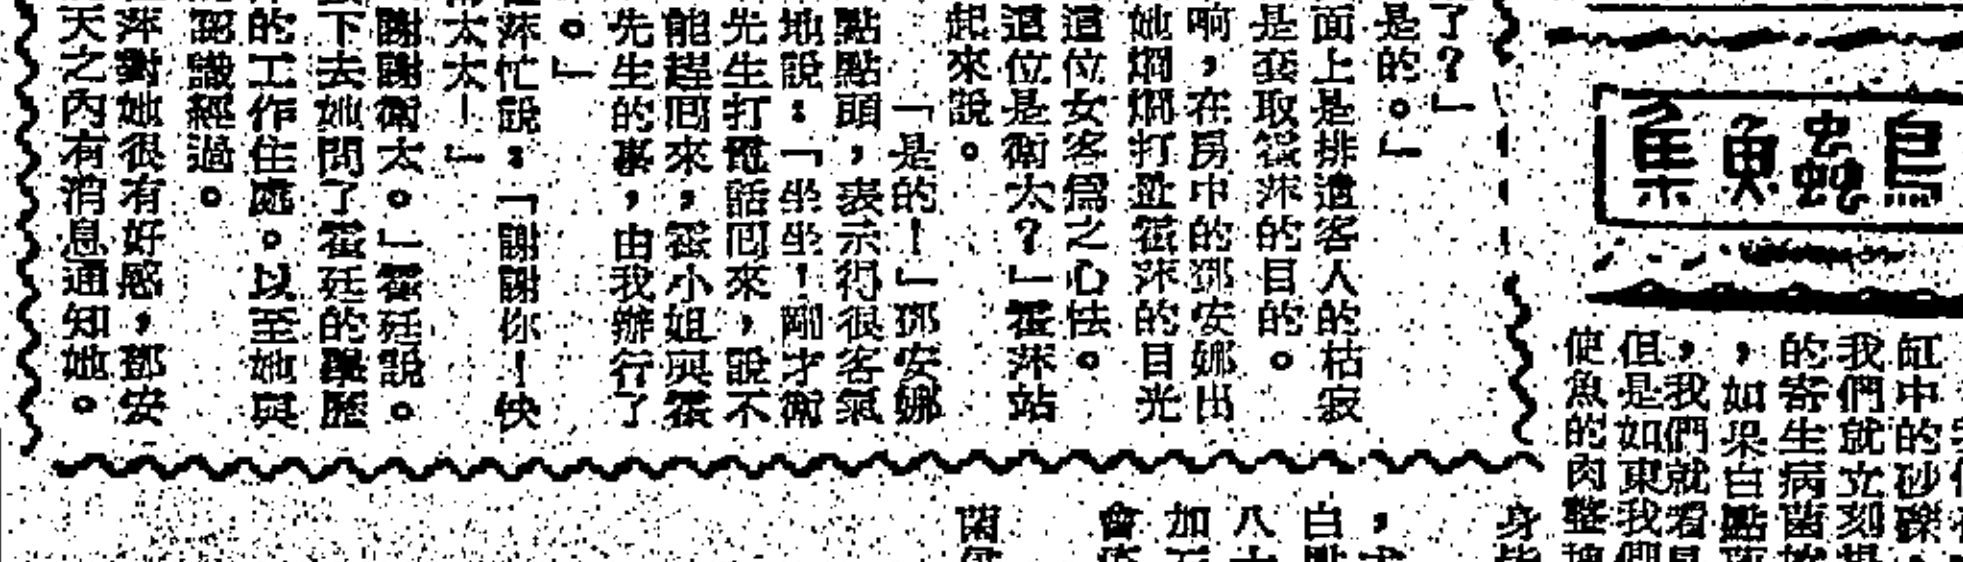 了？」
是的。」
面上是排遣客人的枯寂
是套取霍沫的目的。
啊，在房中的鄧安娜出
她燗燗打量霍沫的目光
這位女客爲之心怯。
這位是衛太？」霍沫站
起來說。
「是的！」鄧安娜
點點頭，表示得很客氣
地說：「坐坐！剛才衛
先生打電話囘來，說不
能趕囘來，霍小姐與霍
先生的事，由我辦行了
。」
沫忙說：「謝謝你！快
太太！」
謝謝衛太。」霍廷說。
下去她問了霍廷的學歷
的工作住處。以至她與
認識經過。
萍對她很有好感，鄧安
天之內有消息通知她。
鳥蟲魚集
缸中的砂礫
我們就立刻
的寄生病菌
，如果白點
，我們就看
但是如東我們
使魚的肉整
身
，
白點
八
加
會
菌